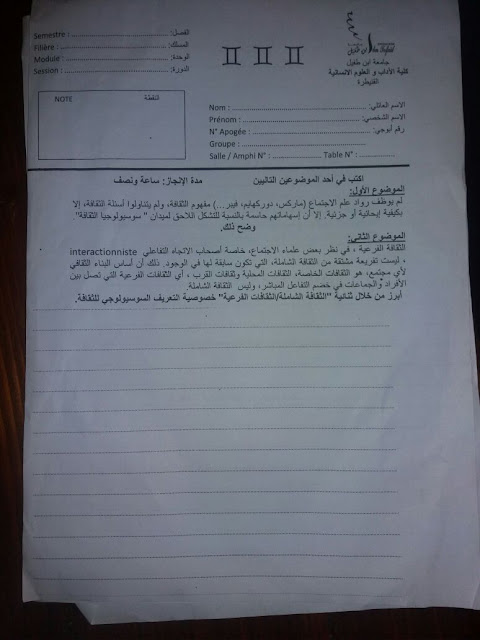 Semestre : الفصل:
Filière : المسلك:
Module : الوحدة:
Session : الدورة:
جامعة ابن طفيل
كلية الآداب و العلوم الإنسانية
القنيطرة
NOTE النقطة
Nom : الاسم العائلي:
Prénom : الاسم الشخصي:
N° Apogée : رقم أبوجي:
Groupe :
Salle / Amphi N° : Table N° :
اكتب في أحد الموضوعين التاليين مدة الإنجاز: ساعة ونصف
الموضوع الأول:
لم يوظف رواد علم الاجتماع (ماركس، دوركهايم، فيبر...) مفهوم الثقافة، ولم يتناولوا أسئلة الثقافة، إلا
بكيفية إيحائية أو جزئية. إلا أن إسهاماتهم حاسمة بالنسبة للتشكل اللاحق لميدان "سوسيولوجيا الثقافة".
وضح ذلك.
الموضوع الثاني:
الثقافة الفرعية ، في نظر بعض علماء الاجتماع، خاصة أصحاب الاتجاه التفاعلي interactionniste
، ليست تفريعة مشتقة من الثقافة الشاملة، التي تكون سابقة لها في الوجود. ذلك أن أساس البناء الثقافي
لأي مجتمع، هو الثقافات الخاصة، الثقافات المحلية وثقافات القرب ، أي الثقافات الفرعية التي تصل بين
الأفراد والجماعات في خضم التفاعل المباشر، وليس الثقافة الشاملة.
أبرز من خلال ثنائية "الثقافة الشاملة/الثقافات الفرعية" خصوصية التعريف السوسيولوجي للثقافة.